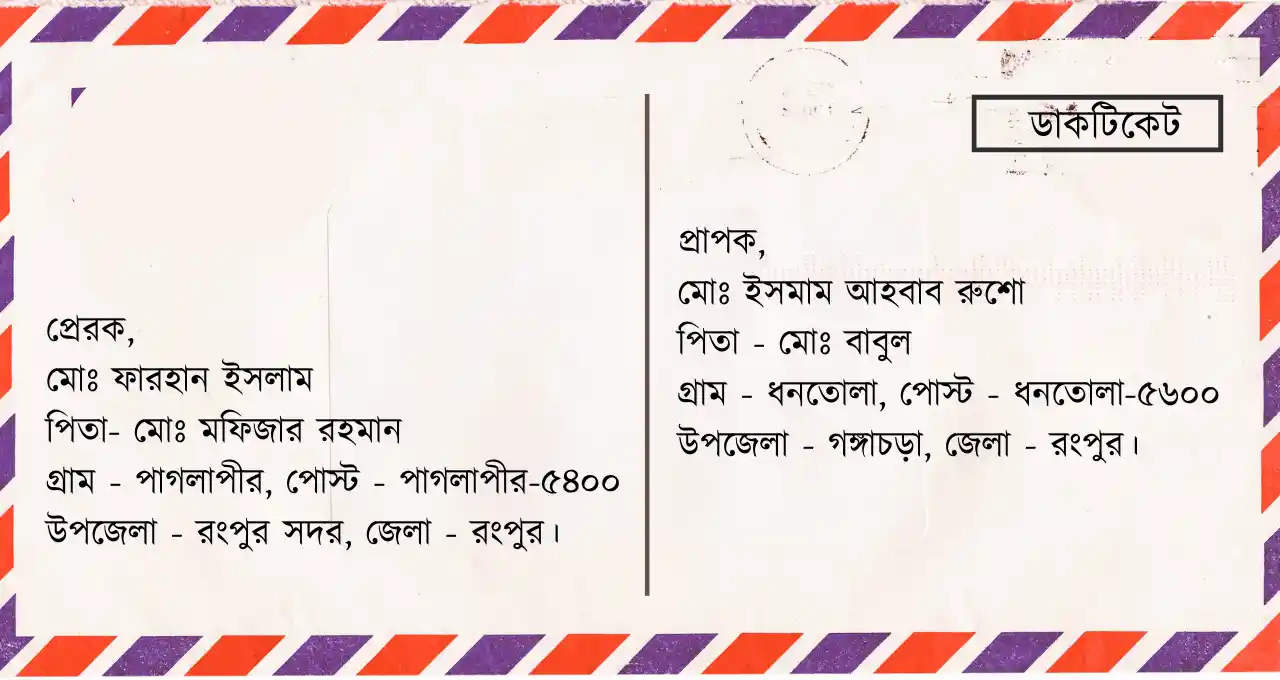 ডাকটিকেট
প্রেরক,
মোঃ ফারহান ইসলাম
পিতা- মোঃ মফিজার রহমান
গ্রাম - পাগলাপীর, পোস্ট - পাগলাপীর-৫৪০০
উপজেলা - রংপুর সদর, জেলা - রংপুর।
প্রাপক,
মোঃ ইসমাম আহবাব রুশো
পিতা - মোঃ বাবুল
গ্রাম - ধনতোলা, পোস্ট - ধনতোলা-৫৬০০
উপজেলা - গঙ্গাচড়া, জেলা - রংপুর।